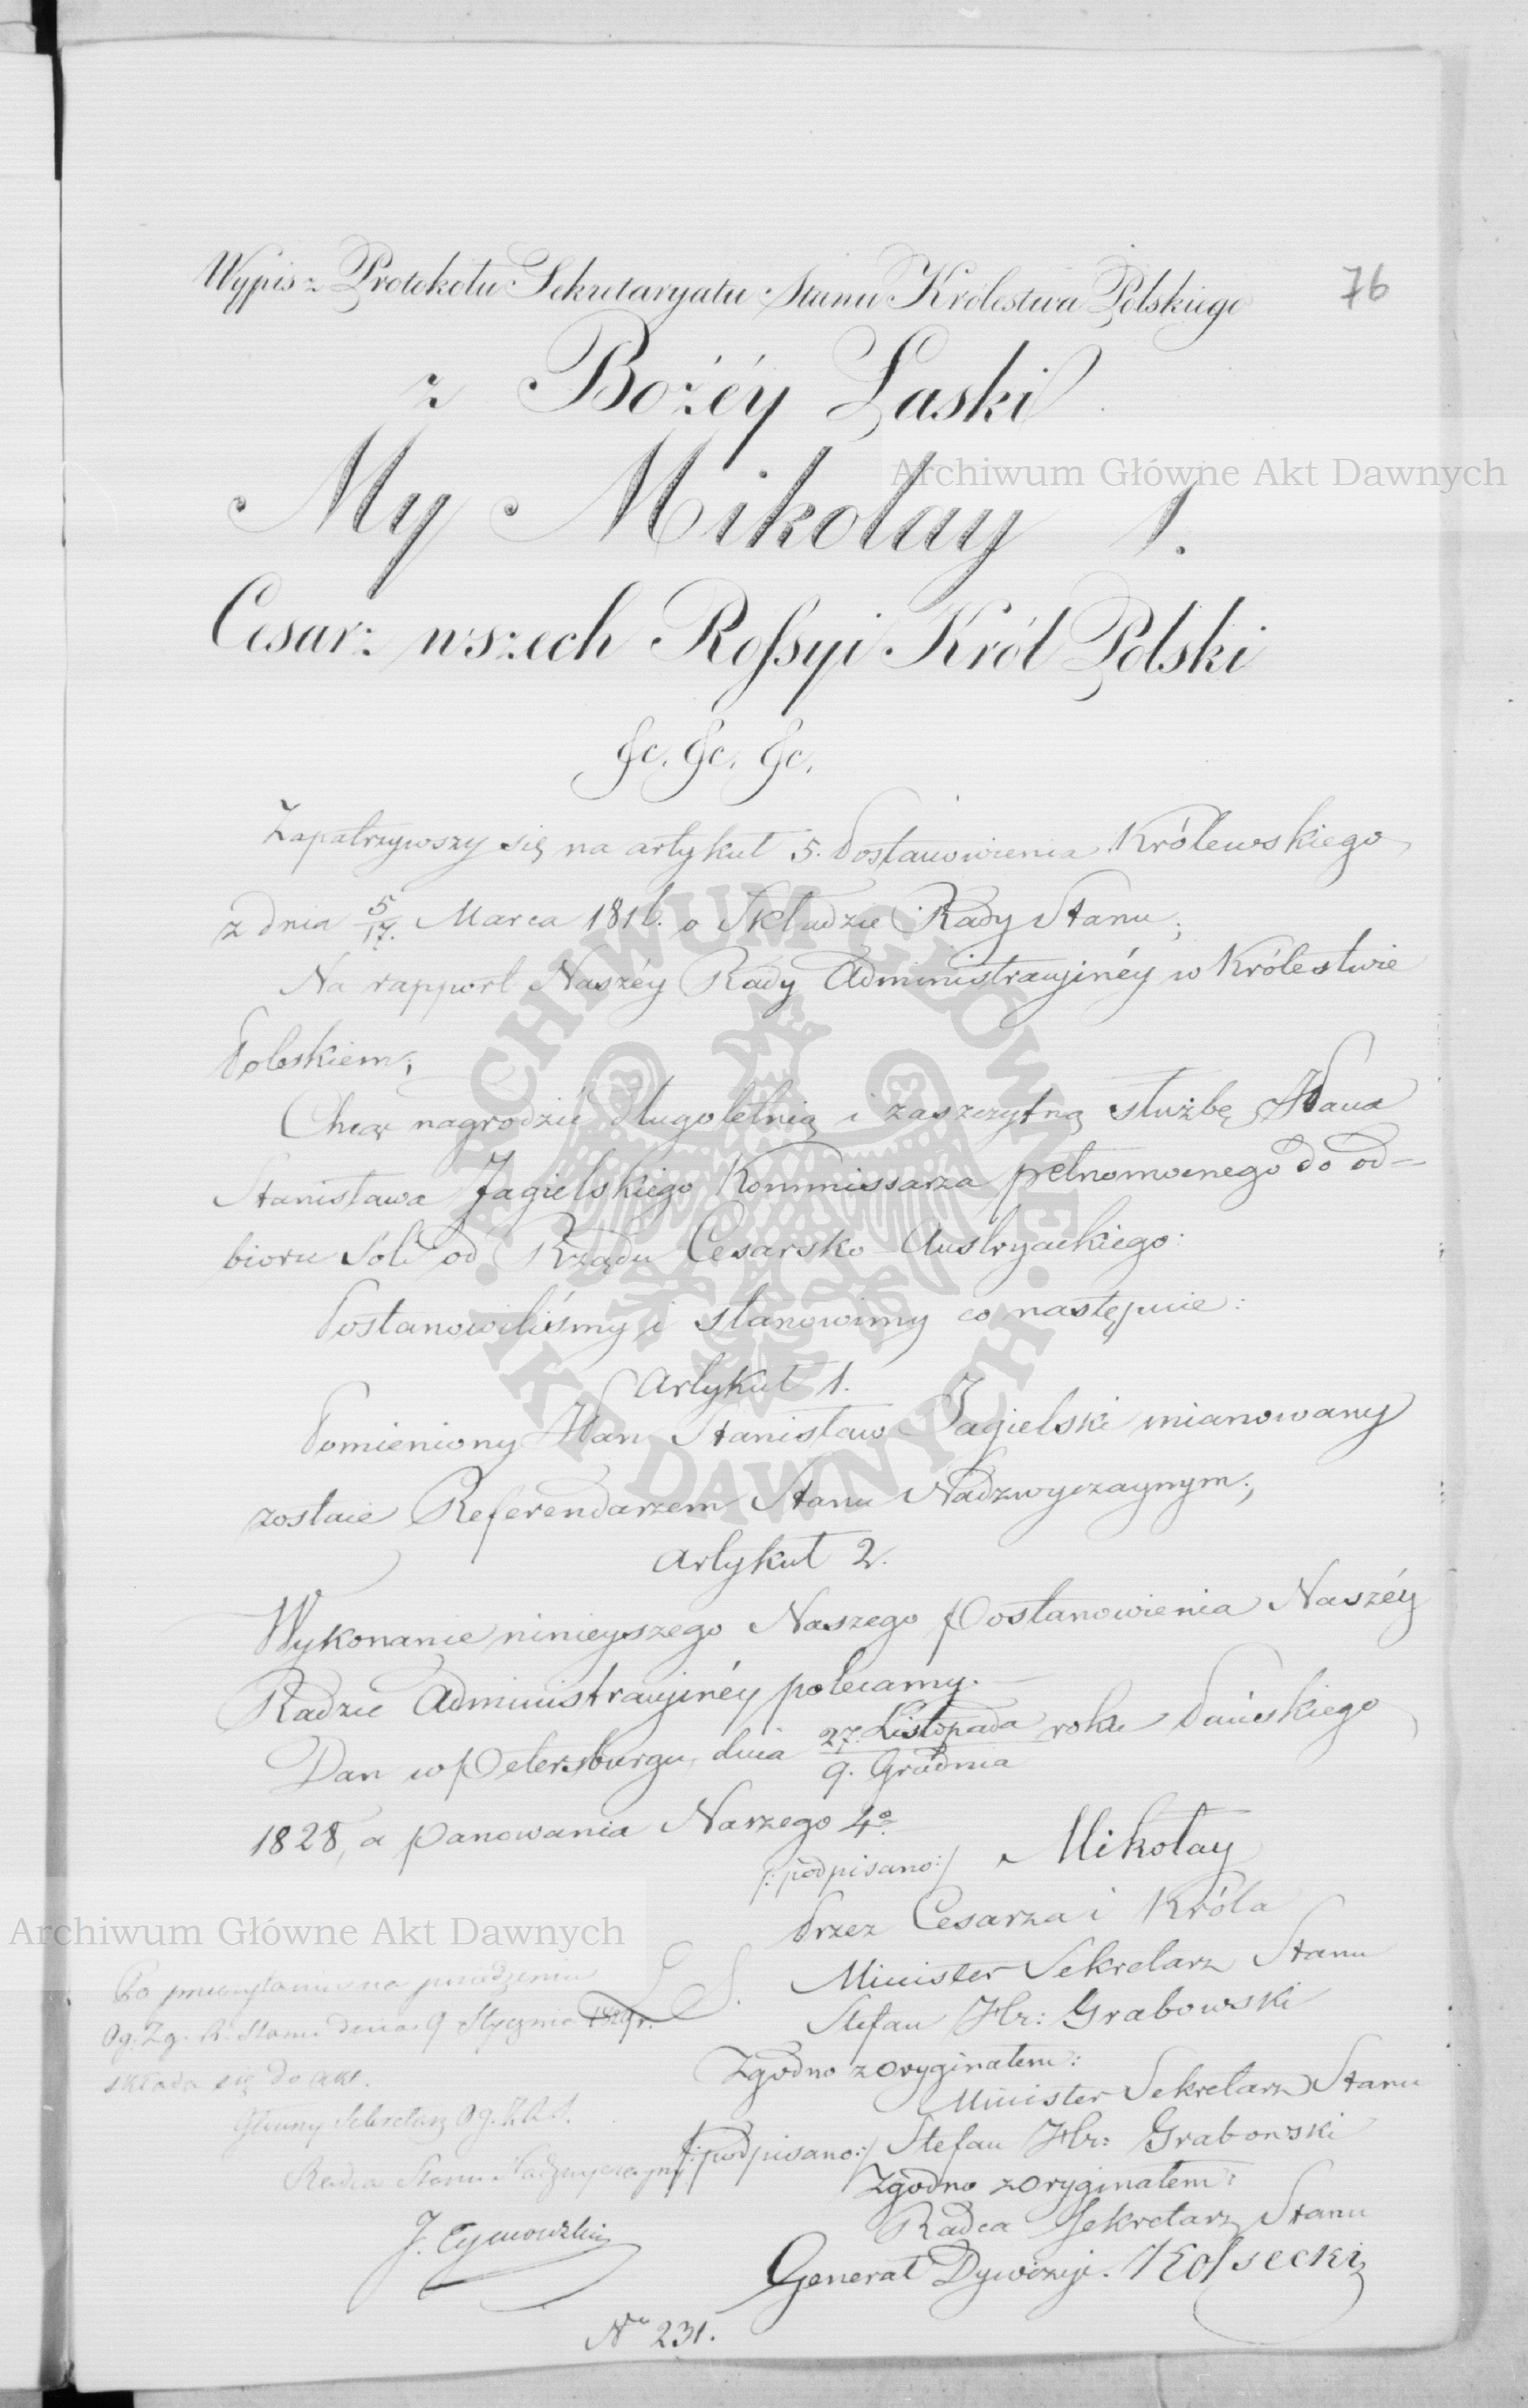 76
Wypis z Protokołu Sekretaryatu Stanu Królestwa Polskiego
z Bożéy Łaski
My Mikołay 1.
Cesarz wszech Rossyi Król Polski
&c. &c. &c.
Zapatrzywszy się na artykuł 5. Postanowienia Królewskiego
z dnia 5/17. Marca 1816. o Składzie Rady Stanu;
Na rapport Naszéy Rady Administracyinéy w Królestwie
Polskiem;
Chcąc nagrodzić długoletnią i zaszczytną służbę Pana
Stanisława Jagielskiego Kommissarza pełnomocnego do od-
bioru Soli od Rządu Cesarsko-Austryackiego:
Postanowiliśmy i stanowimy co następuie:
Artykuł 1.
Pomieniony Pan Stanisław Jagielski mianowany
zostaie Referendarzem Stanu Nadzwyczaynym;
Artykuł 2.
Wykonanie ninieyszego Naszego Postanowienia Naszéy
Radzie Administracyinéy polecamy.—
Dan w Petersburgu, dnia 27. Listopada / 9. Grudnia roku Pańskiego
1828, a panowania Naszego 4º.
/:podpisano:/ Mikołay
Przez Cesarza i Króla
Minister Sekretarz Stanu
L. S.
Stefan Hr: Grabowski
Zgodno z oryginałem:
Minister Sekretarz Stanu
/:podpisano:/ Stefan Hr: Grabowski
Zgodno z oryginałem:
Radca Sekretarz Stanu
Generał Dywizyi. Kossecki
Po przeczytaniu na posiedzeniu
Og: Zg. R. Stanu dnia 9 Stycznia 1829 r.
składa się do akt.
Główny Sekretarz Og. Z. R. S.
Radca Stanu Nadzwyczayny
J. Tymowski
Nº 231.
Archiwum Główne Akt Dawnych
Archiwum Główne Akt Dawnych
ARCHIWUM GŁÓWNE · AKT DAWNYCH ·